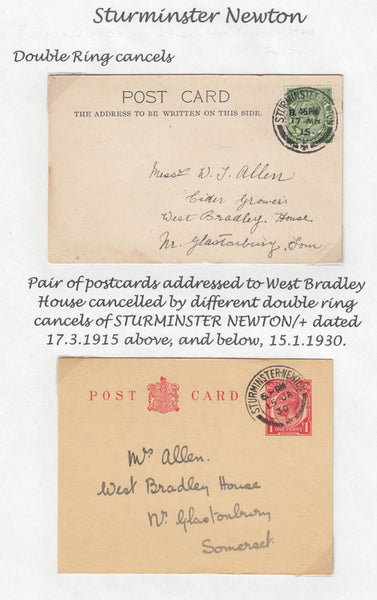 Sturminster Newton
Double Ring cancels
POST CARD
THE ADDRESS TO BE WRITTEN ON THIS SIDE.
STURMINSTER
45 PM
17 MR
15
Messrs W. T. Allen
Cider Growers
West Bradley House
Nr. Glastonbury. Som
Pair of postcards addressed to West Bradley
House cancelled by different double ring
cancels of STURMINSTER NEWTON/+ dated
17.3.1915 above, and below, 15.1.1930.
POST CARD
STURMINSTER-NEWTON
15 JA
30
1 ONE PENNY 1
Mrs Allen.
West Bradley House
Nr Glastonbury
Somerset.